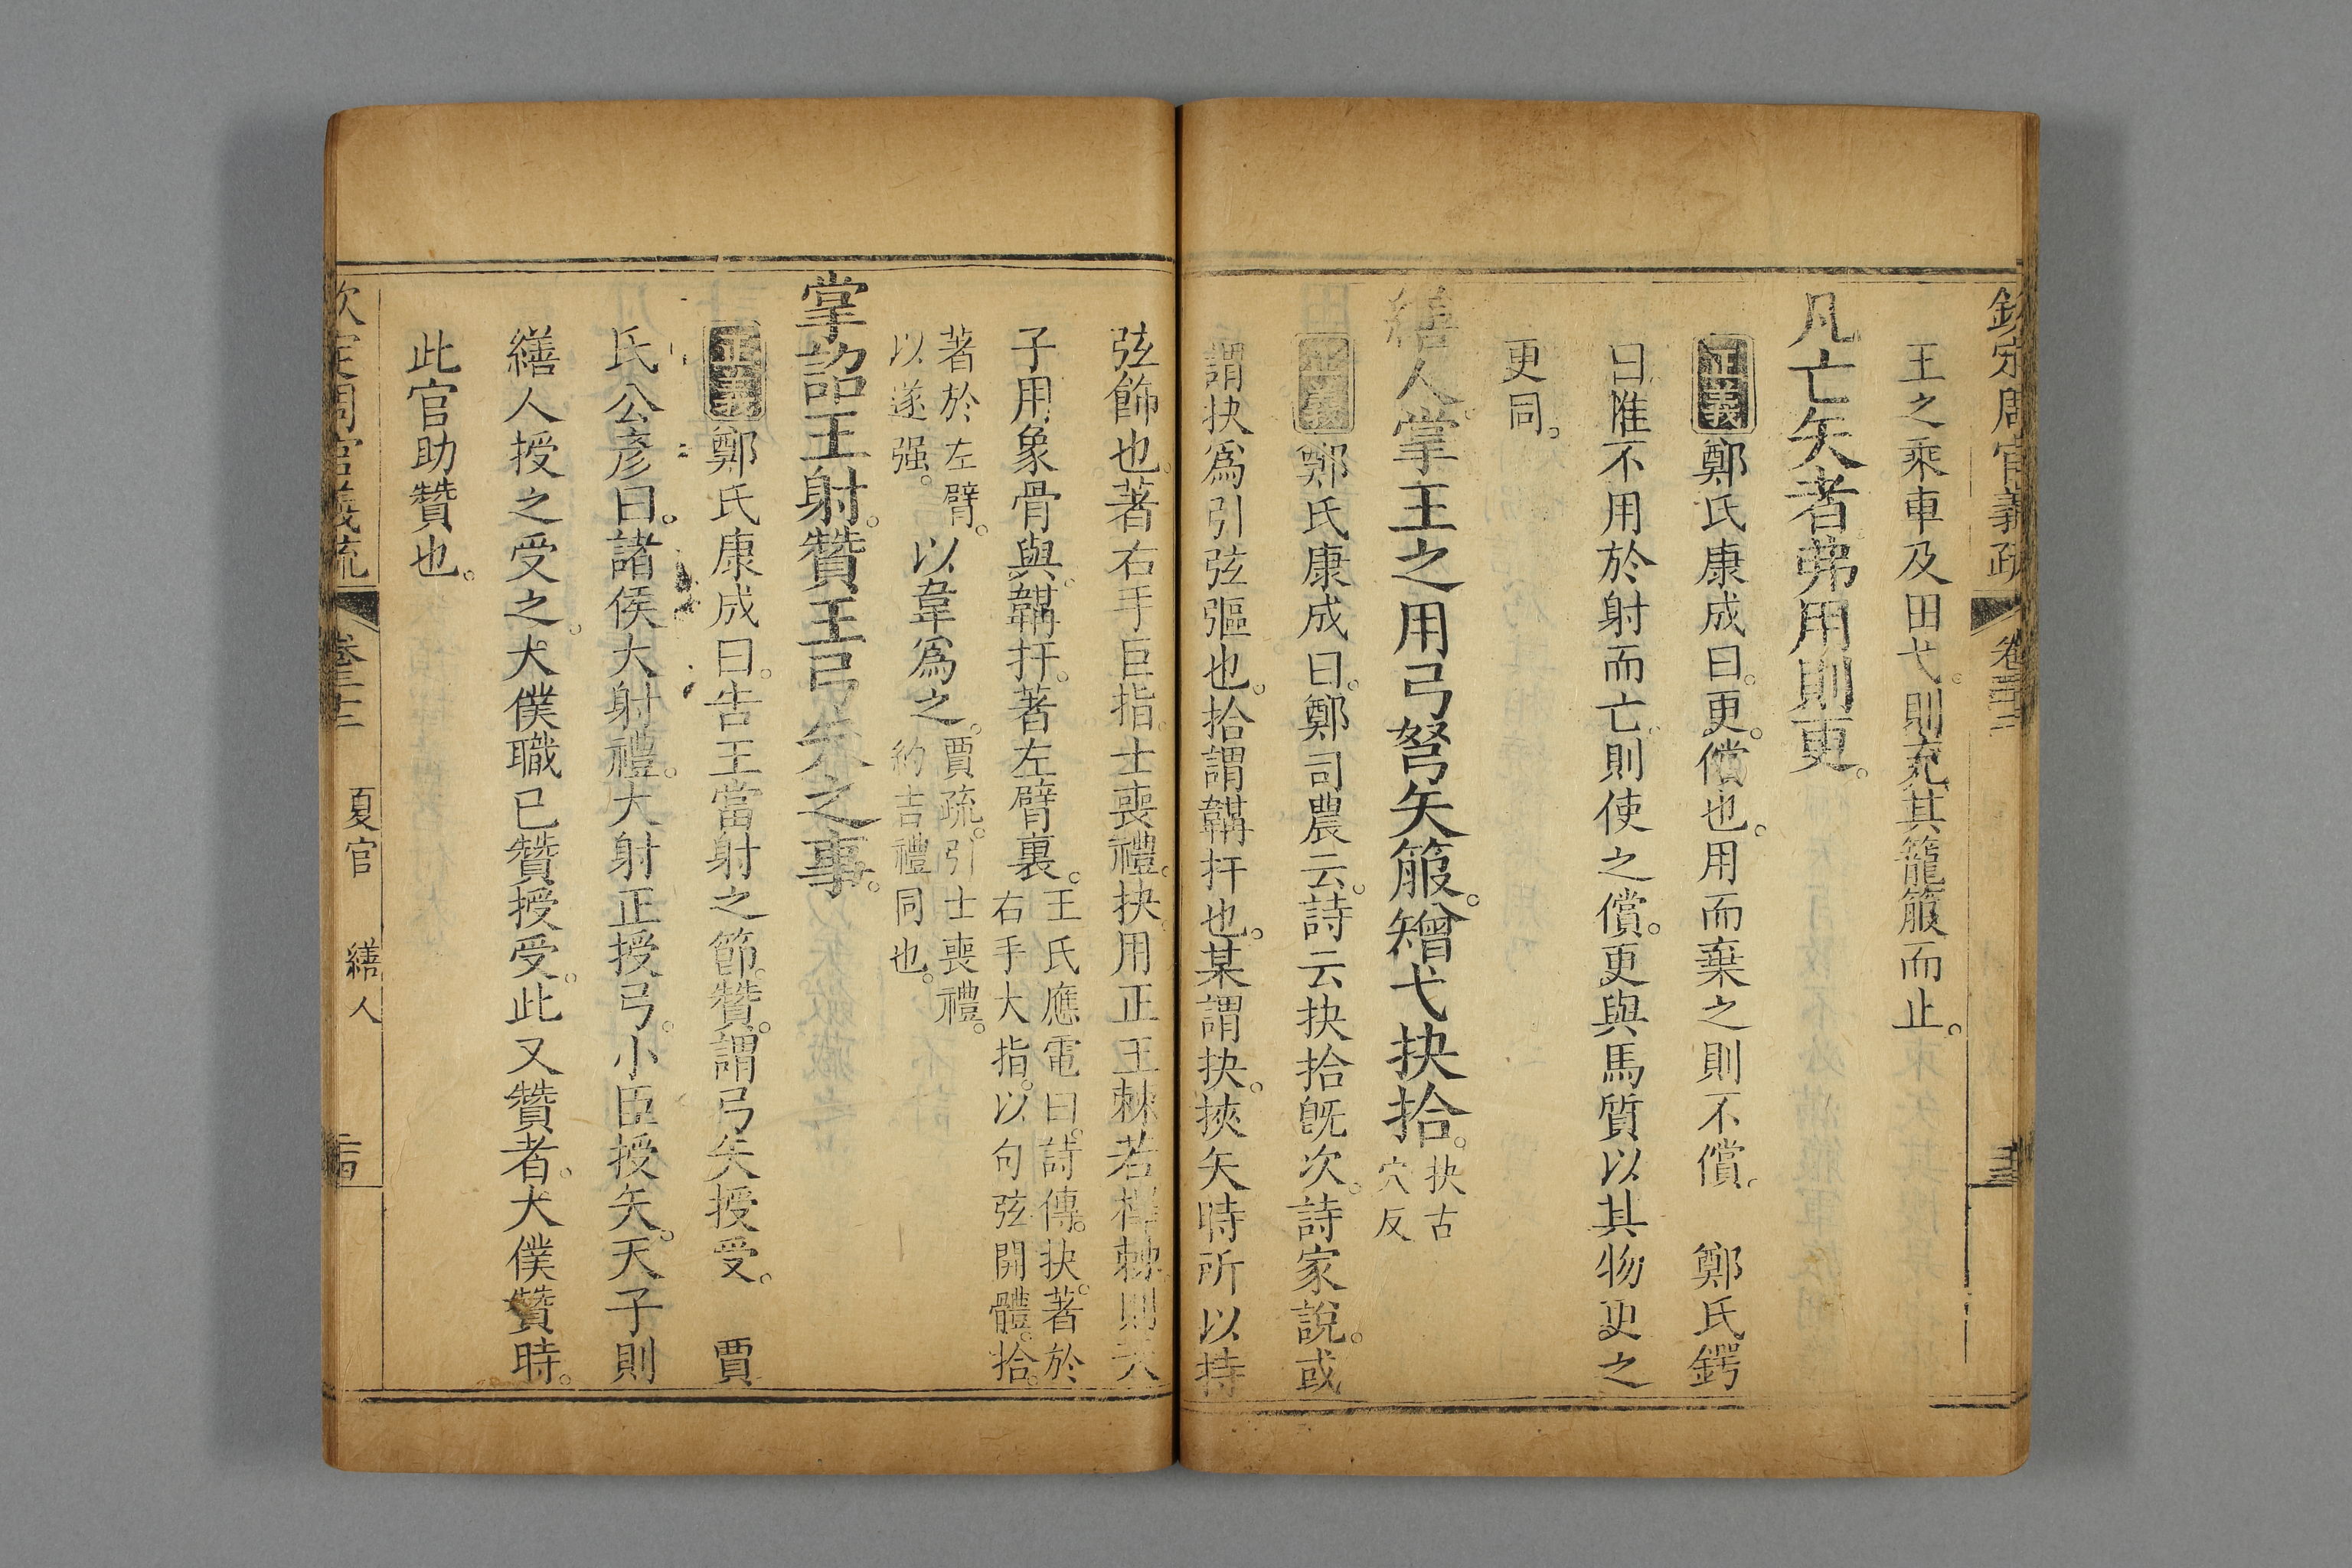 欽定周官義疏 卷三十二
王之乘車及田弋。則充其籠箙而止。
凡亡矢者弗用則更。
正義 鄭氏康成曰。更。償也。用而棄之則不償。 鄭氏鍔
曰。惟不用於射而亡。則使之償。更與馬質以其物更之
更同。
繕人。掌王之用弓弩矢箙。矰弋抉拾。抉古
穴反
正義 鄭氏康成曰。鄭司農云。詩云抉拾旣次。詩家說。或
謂抉爲引弦彄也。拾謂韝扞也。某謂抉。挾矢時所以持
弦飾也。著右手巨指。士喪禮。抉。用正王棘若檡棘。則天
子用象骨與。韝扞。著左臂裏。王氏應電曰。詩傳。抉。著於
右手大指。以句弦開體。拾。
著於左臂。
以遂弦。
以韋爲之。賈疏。引士喪禮。
約吉禮同也。
掌詔王射。贊王弓矢之事。
正義 鄭氏康成曰。告王當射之節。贊。謂弓矢授受。 賈
氏公彥曰。諸侯大射禮。大射正授弓。小臣授矢。天子則
繕人授之受之。大僕職已贊授受。此又贊者。大僕贊時。
此官助贊也。
欽定周官義疏 卷三十二 夏官 繕人 二四